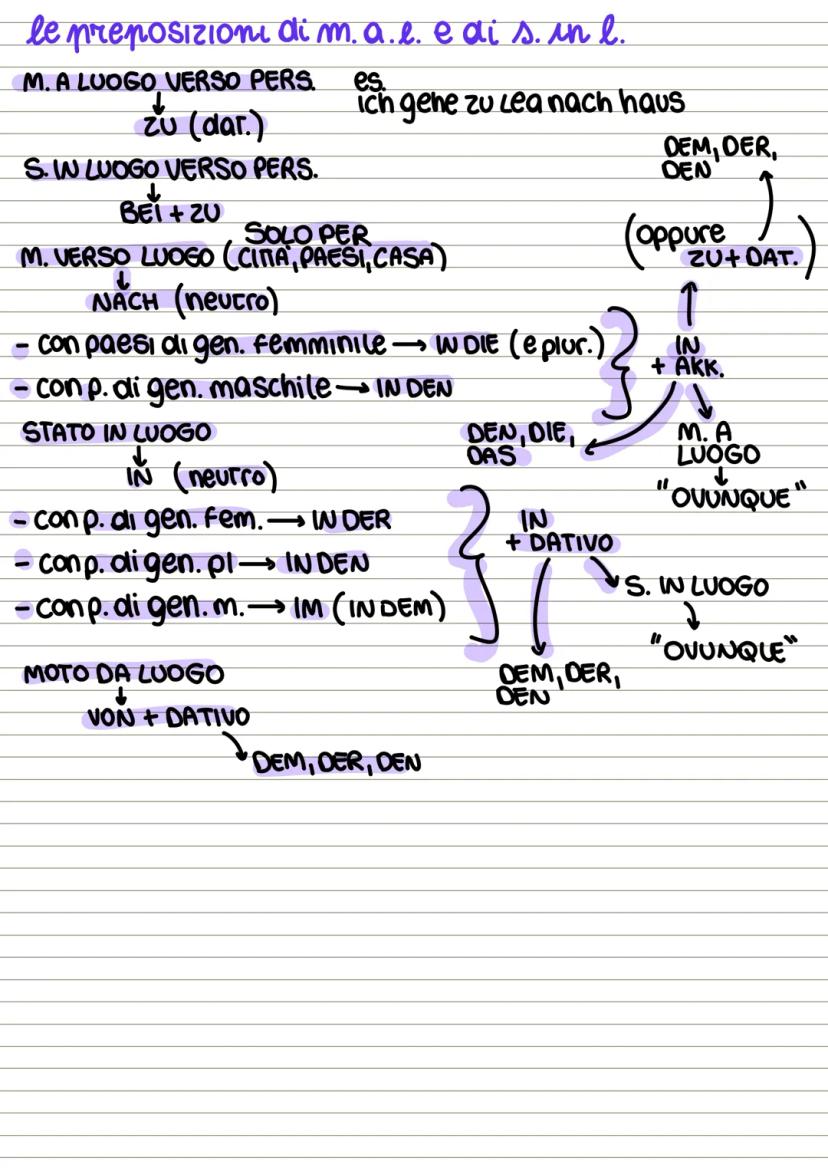 le preposizioni di m. a. l. e di s. in l.
M. A LUOGO VERSO PERS. es.
ich gehe zu Lea nach haus
↓
ZU (dat.)
S. IN LUOGO VERSO PERS.
↓
BEI + ZU
SOLO PER
M. VERSO LUOGO (CITTÀ, PAESI, CASA)
↓
NACH (neutro)
- con paesi di gen. femminile → IN DIE (e plur.)
- con p. di gen. maschile → IN DEN
DEM, DER,
DEN
(oppure
ZU + DAT.)
IN
+ AKK.
DEN, DIE,
DAS
M. A
LUOGO
↓
"OVUNQUE"
STATO IN LUOGO
↓
IN (neutro)
- con p. di gen. fem. → IN DER
- con p. di gen. pl → IN DEN
- con p. di gen. m. → IM (IN DEM)
IN
+ DATIVO
S. IN LUOGO
"OVUNQUE"
DEM, DER,
DEN
MOTO DA LUOGO
↓
VON + DATIVO
DEM, DER, DEN